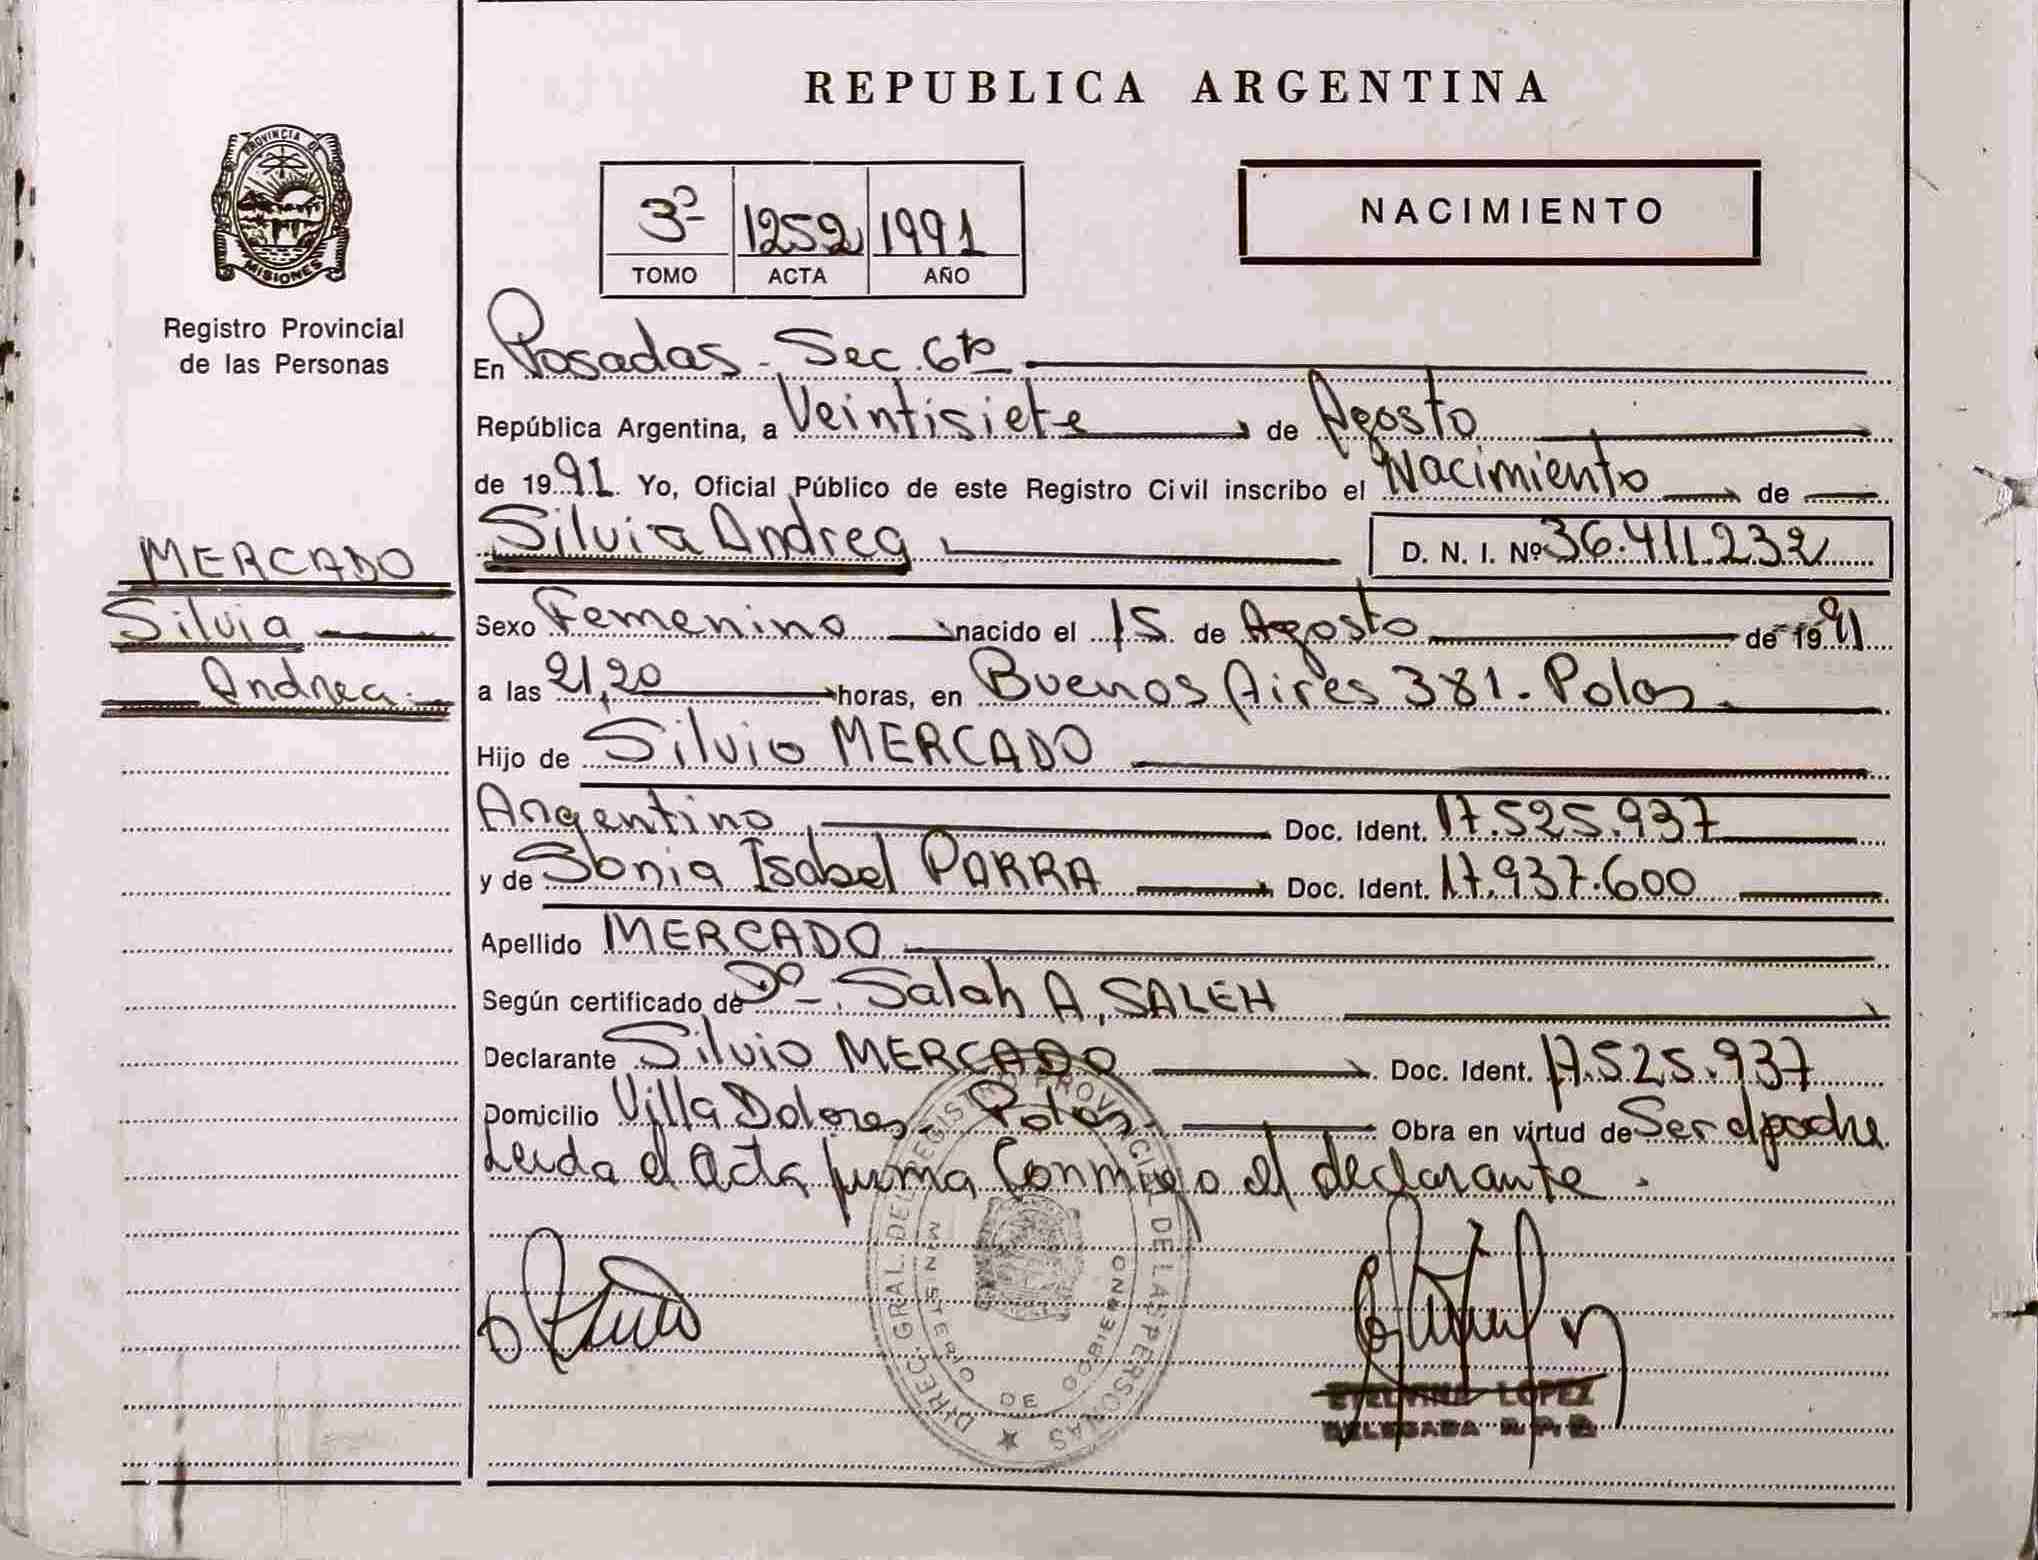 REPUBLICA ARGENTINA
PROVINCIA DE
MISIONES
Registro Provincial
de las Personas
3º 1252 1991
TOMO ACTA AÑO
NACIMIENTO
En Posadas - Sec. 6ta
República Argentina, a Veintisiete de Agosto
de 1991. Yo, Oficial Público de este Registro Civil inscribo el Nacimiento de
Silvia Andrea D. N. I. Nº 36.411.232
MERCADO
Silvia
Andrea
Sexo Femenino nacido el 15 de Agosto de 1991
a las 21,20 horas, en Buenos Aires 381 - Pdas
Hijo de Silvio MERCADO
Argentino Doc. Ident. 17.525.937
y de Sonia Isabel PARRA Doc. Ident. 17.937.600
Apellido MERCADO
Según certificado de Dº. Salah A, SALEH
Declarante Silvio MERCADO Doc. Ident. 17.525.937
Domicilio Villa Dolores - Pdas Obra en virtud de Ser el padre
Leida el acta firma Conmigo el declarante.
DIREC. GRAL. DEL REGISTRO PROVINCIAL DE LAS PERSONAS
MINISTERIO DE GOBIERNO
ETELVINA LOPEZ
DELEGADA R. P. P.